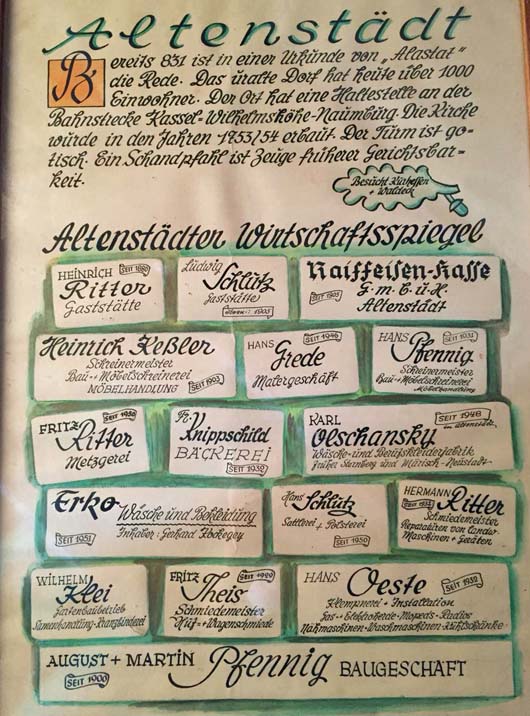 Altenstädt
Bereits 831 ist in einer Urkunde von „Alastat"
die Rede. Das uralte Dorf hat heute über 1000
Einwohner. Der Ort hat eine Haltestelle an der
Bahnstrecke Kassel-Wilhelmshöhe-Naumburg. Die Kirche
wurde in den Jahren 1753/54 erbaut. Der Turm ist go-
tisch. Ein Schandpfahl ist Zeuge früherer Gerichtsbar-
keit.
Besucht Kurhessen
+ Waldeck
Altenstädter Wirtschaftsspiegel
HEINRICH SEIT 1880
Ritter
Gaststätte
Ludwig
Schlutz
Gaststätte
1905
Raiffeisen-Kasse
G.m.b.u.H.
SEIT 1905
Altenstädt
Heinrich Keßler
Schreinermeister
Bau-+Möbelschreinerei
MÖBELHANDLUNG SEIT 1903
SEIT 1946
HANS Grede
Malergeschäft
HANS SEIT 1931
Pfennig
Schreinermeister
Bau-+Möbelschreinerei
Möbelhandlung
FRITZ SEIT 1950
Ritter
Metzgerei
Fr. Knippschild
BÄCKEREI
SEIT 1932
KARL SEIT 1948
Olschansky
Wäsche-und Berufskleiderfabrik
früher Sternberg und Mährisch-Neustadt
Erko Wäsche und Bekleidung
SEIT 1951 Inhaber: Gerhard
Hans Schlutz
Sattlerei + Polsterei
SEIT 1950
HERMANN
Ritter
Schmiedemeister
Reparaturen von Landw.
Maschinen + Geräten
WILHELM
Klei
Gartenbaubetrieb
Samenhandlung-Kranzbinderei
FRITZ SEIT 1929
Theis
Schmiedemeister
Huf-+Wagenschmiede
HANS SEIT 1932
Oeste
Klempnerei + Installation
Gas-+Elektroherde-Mopeds-Radios
Nähmaschinen-Waschmaschinen-Kühlschränke
AUGUST + MARTIN Pfennig BAUGESCHÄFT
SEIT 1900